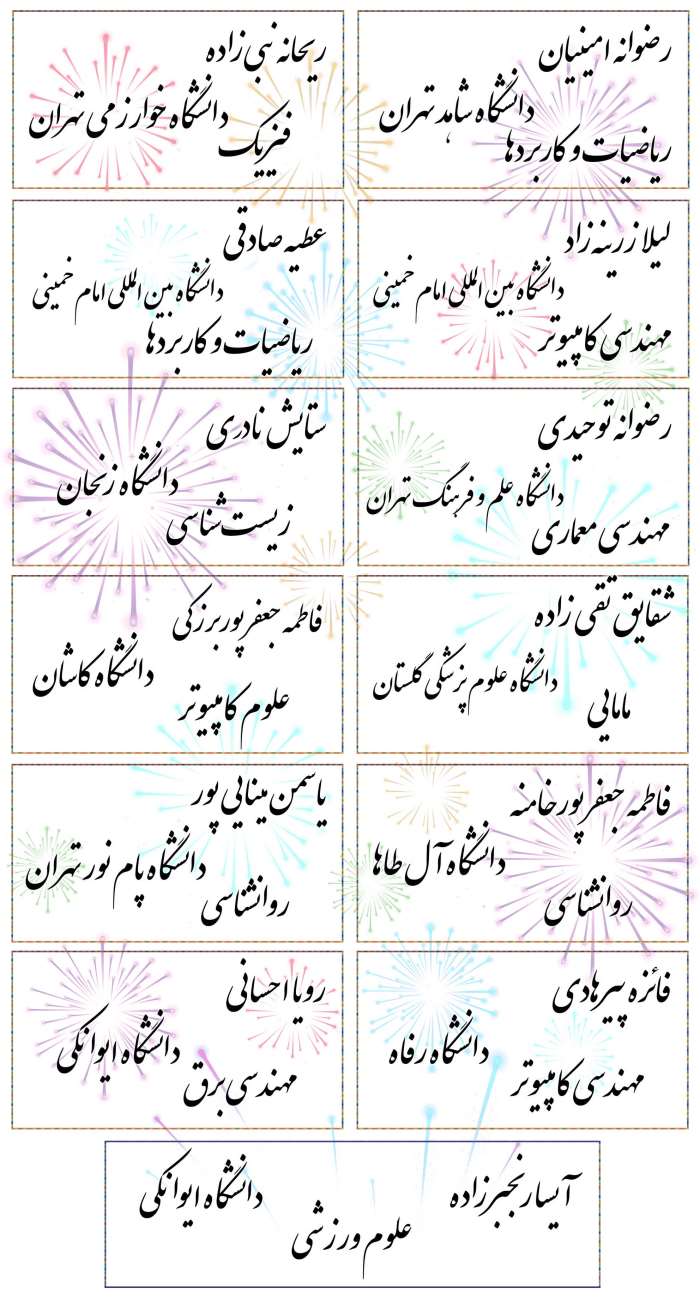 رضوانه امینیان
دانشگاه شاهد تهران
ریاضیات و کاربردها
ریحانه نبی زاده
دانشگاه خوارزمی تهران
فیزیک
لیلا زرینه زاد
دانشگاه بین المللی امام خمینی
مهندسی کامپیوتر
عطیه صادقی
دانشگاه بین المللی امام خمینی
ریاضیات و کاربردها
رضوانه توحیدی
دانشگاه علم و فرهنگ تهران
مهندسی معماری
ستایش نادری
دانشگاه زنجان
زیست شناسی
شقایق تقی زاده
دانشگاه علوم پزشکی گلستان
مامایی
فاطمه جعفرپور برزکی
دانشگاه کاشان
علوم کامپیوتر
فاطمه جعفرپور خامنه
دانشگاه آل طاها
روانشناسی
یاسمن مینایی پور
دانشگاه پیام نور تهران
روانشناسی
فائزه پیرهادی
دانشگاه رفاه
مهندسی کامپیوتر
رویا احسانی
دانشگاه ایوانکی
مهندسی برق
آیسا رنجبرزاده
دانشگاه ایوانکی
علوم ورزشی